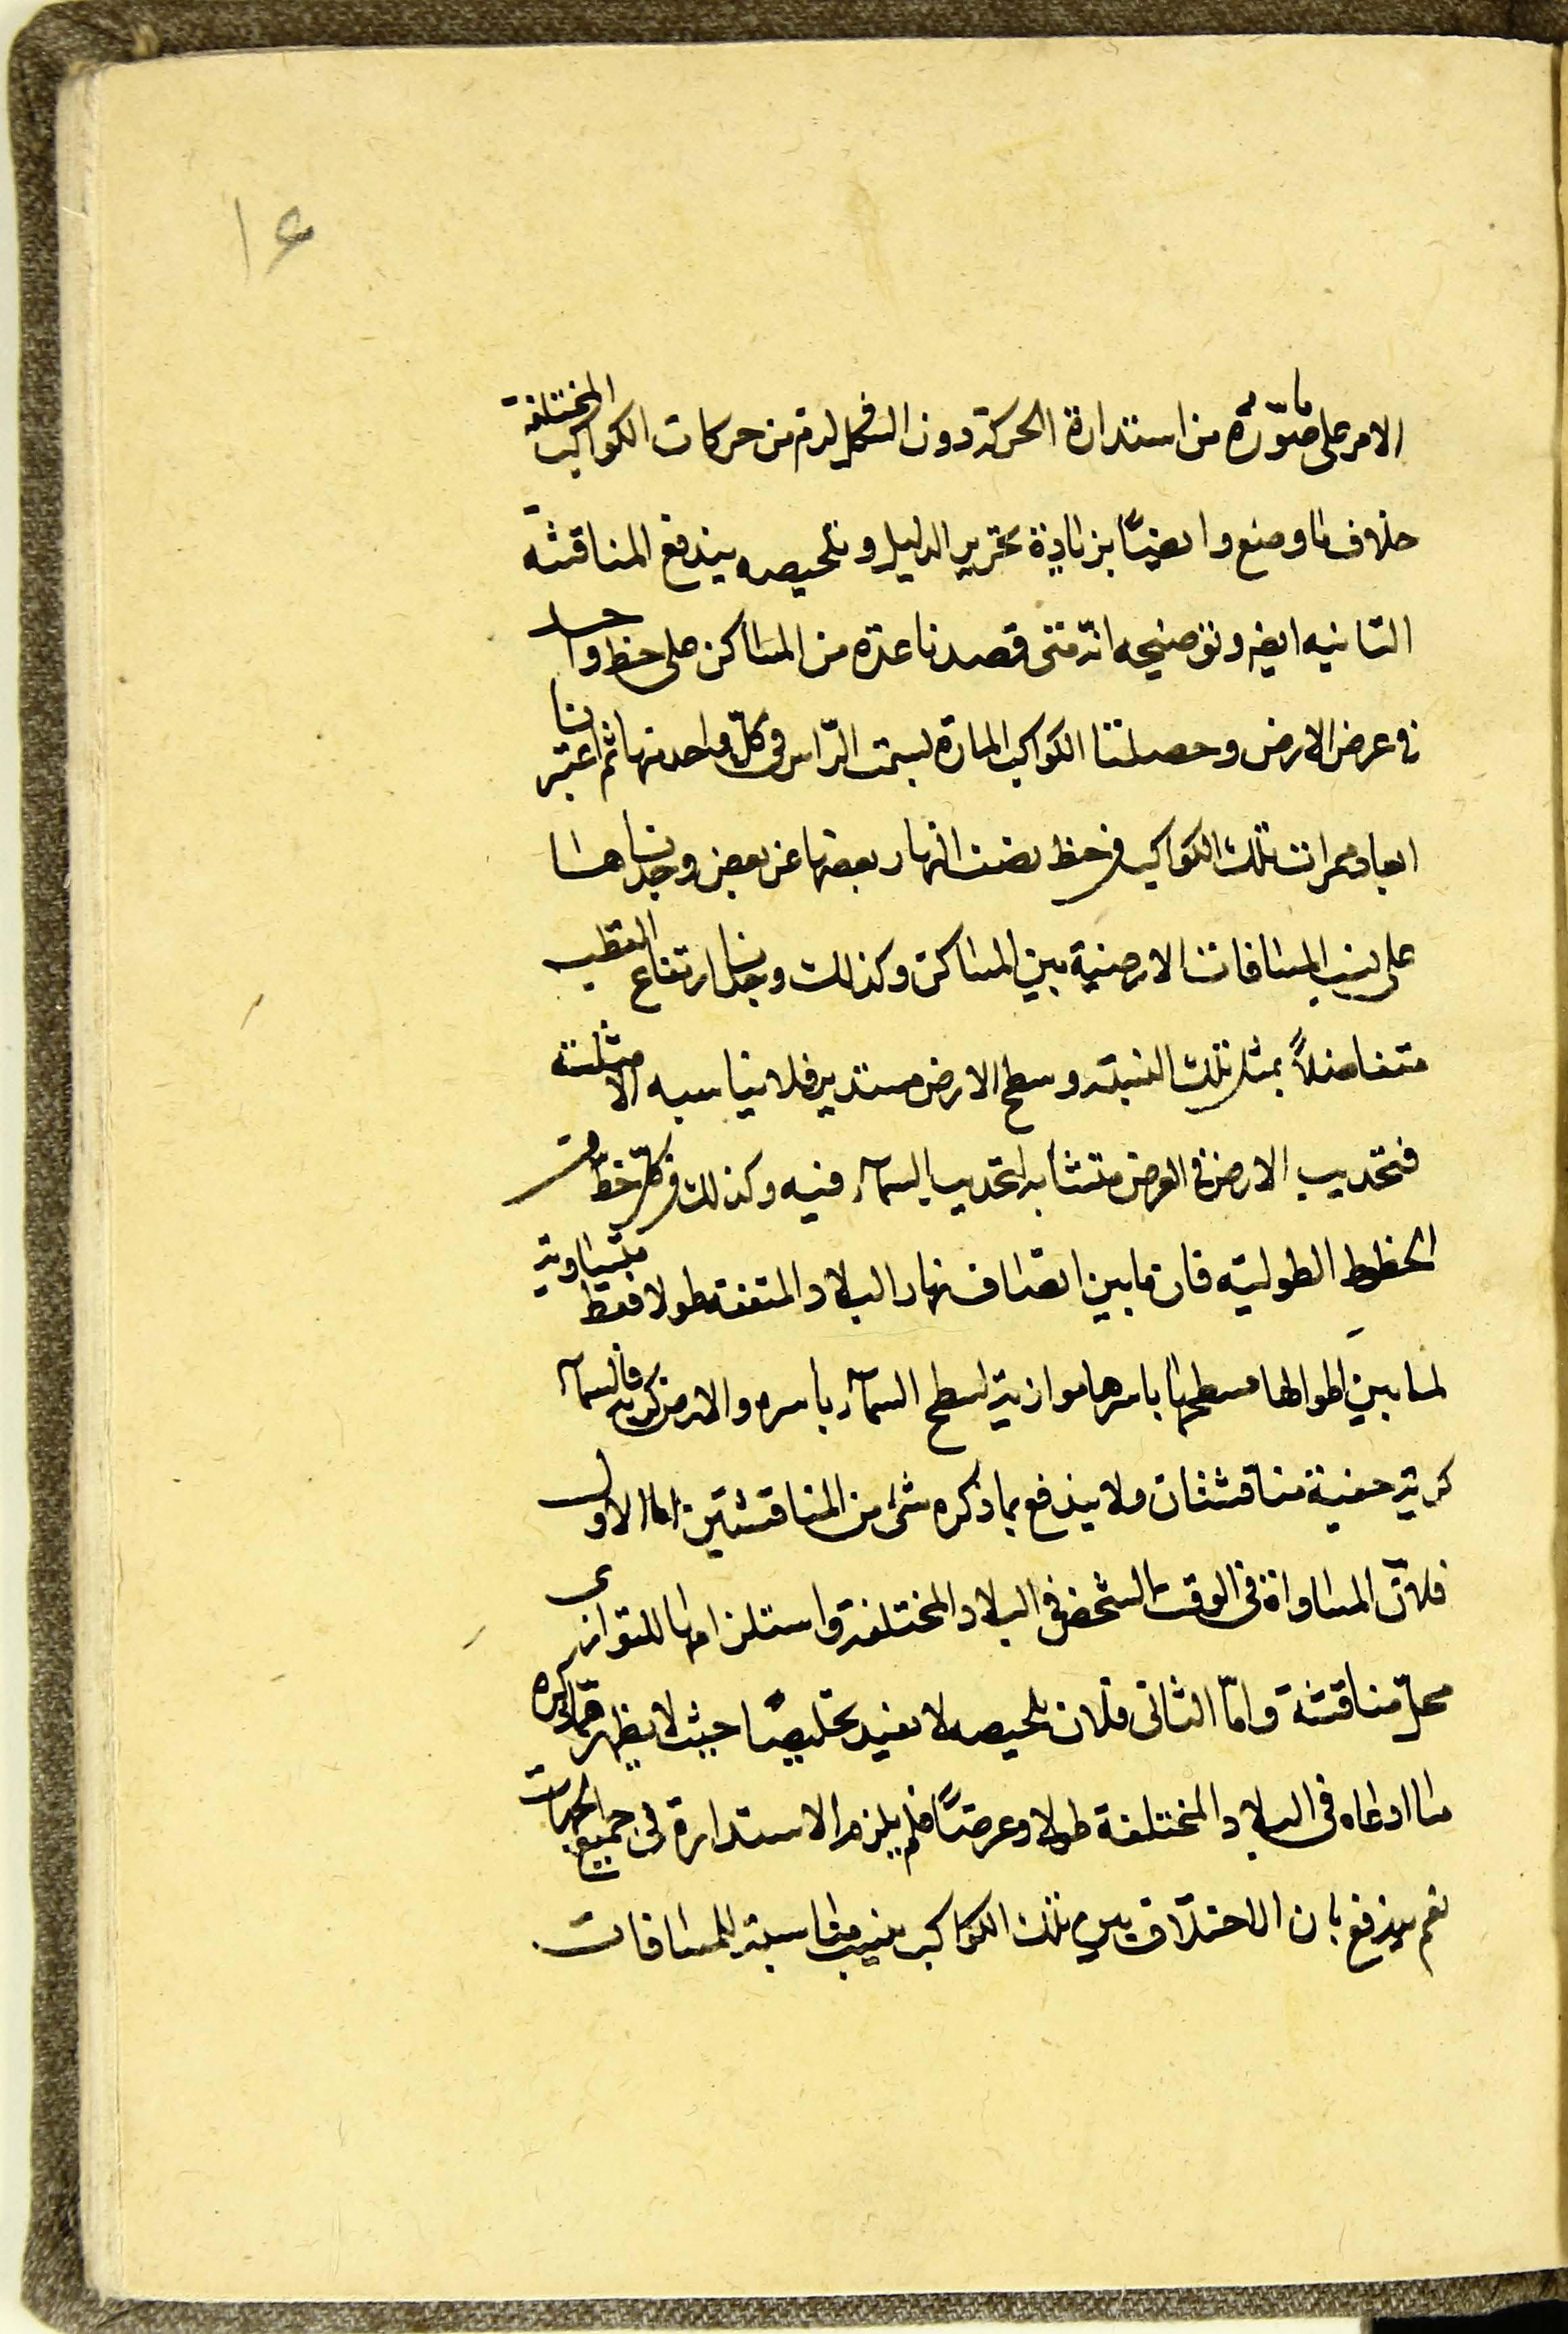 ١٤
الامر على ما صوّره من استدارة الحركة دون الشكل لزم من حركات الكواكب المختلفة
خلاف ما وضع وايضًا بزيادة تحرير الدليل وتلخيصه يندفع المناقشة
الثانيه ايضه وتوضيحه انّه متى قصدنا عدّه من المساكن على خط واحد
فى عرض الارض وحصلنا الكواكب المارة لسمت الرّاس فى كلّ واحد منها ثم اعتبرنا
ابعاد ممرات تلك الكواكب فى خط نصف النهار بعضها عن بعض وجدناها
على نسب المسافات الارضية بين المساكن وكذلك وجدنا ارتفاع القطب
متفاضلاً بمثل تلك النسبة وسطح الارض مستدير فلا يناسبه الا مثلثه
فتحديب الارض فى العرض متشابه لتحديب السمآء فيه وكذلك فى كلّ خطّ من
الخطوط الطولية فان ما بين انصاف نهار البلاد المتفقة طولا فقط متساوية
لما بين اطوالها فسطحها باسرها موازية لسطح السمآء باسره والارض كرية فالسمآء
كرية ففيه مناقشتان ولا يندفع بما ذكره شئ من المناقشتين اما الاول
فلانّ المساواة فى الوقت الشخص فى البلاد المختلفة واستلزامها للتوازى
محلّ مناقشة وامّا الثانى فلان تلخيصه لا يفيد تخليصًا حيث لا يظهر مما ذكره
ما ادعاه فى البلاد المختلفة طولا وعرضًا فلم يلزم الاستدارة فى جميع الجهات
نعم يندفع بان الاختلاف بين تلك الكواكب بنسب مناسبة للمسافات